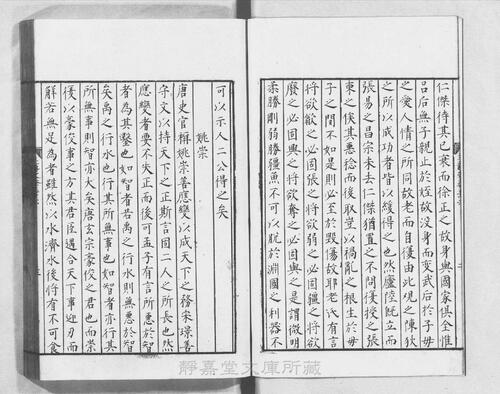 仁傑待其已衰而徐正之故身與國家俱全惟
呂后無子親止於姪故沒身而變武后於子母
之愛人情之所同故老而自復由此觀之陳狄
之所以成功者皆以緩得之也然廬陵既立而
張易之昌宗未去仁傑猶置之不問復授之張
柬之俟其惡稔而後取豈以禍亂之根生於母
子之間不如是則必至於毀傷故耶老氏有言
將欲歙之必固張之將欲弱之必固彊之將欲
廢之必固興之將欲奪之必固與之是謂微明
柔勝剛弱勝彊魚不可以脫於淵國之利器不
可以示人二公得之矣
姚崇
唐史官稱姚崇善應變以成天下之務宋璟善
守文以持天下之正斯言固二人之所長也然
應變者要不失正而後可孟子有言所惡於智
者為其鑿也如智者若禹之行水則無惡於智
矣禹之行水也行其所無事也如智者亦行其
所無事則智亦大矣唐玄宗豪俊之君也而崇
復以豪俊事之方其君臣遇合天下事迎刃而
解若無足為者雖然以水濟水後將有不可食
靜嘉堂文庫所藏